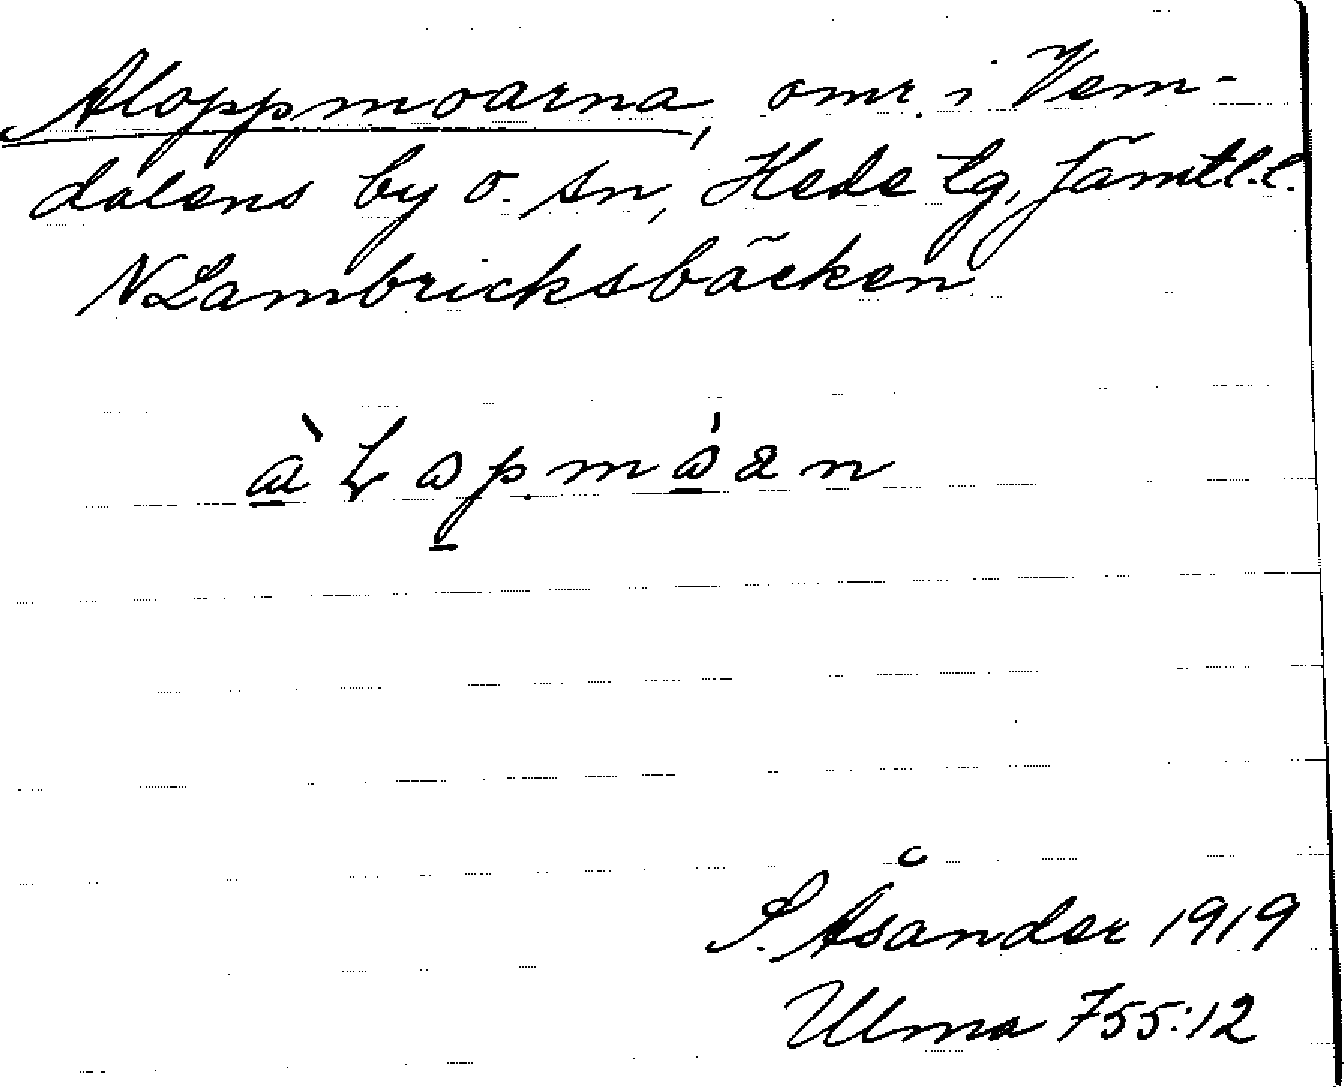 Aloppmoarna, omr. i Vem-
dalens by o. sn, Hede tg, Jämtl.l.
N Lambricksbäcken
àLopmóan
S. Åsander 1919
Ulma 755:12